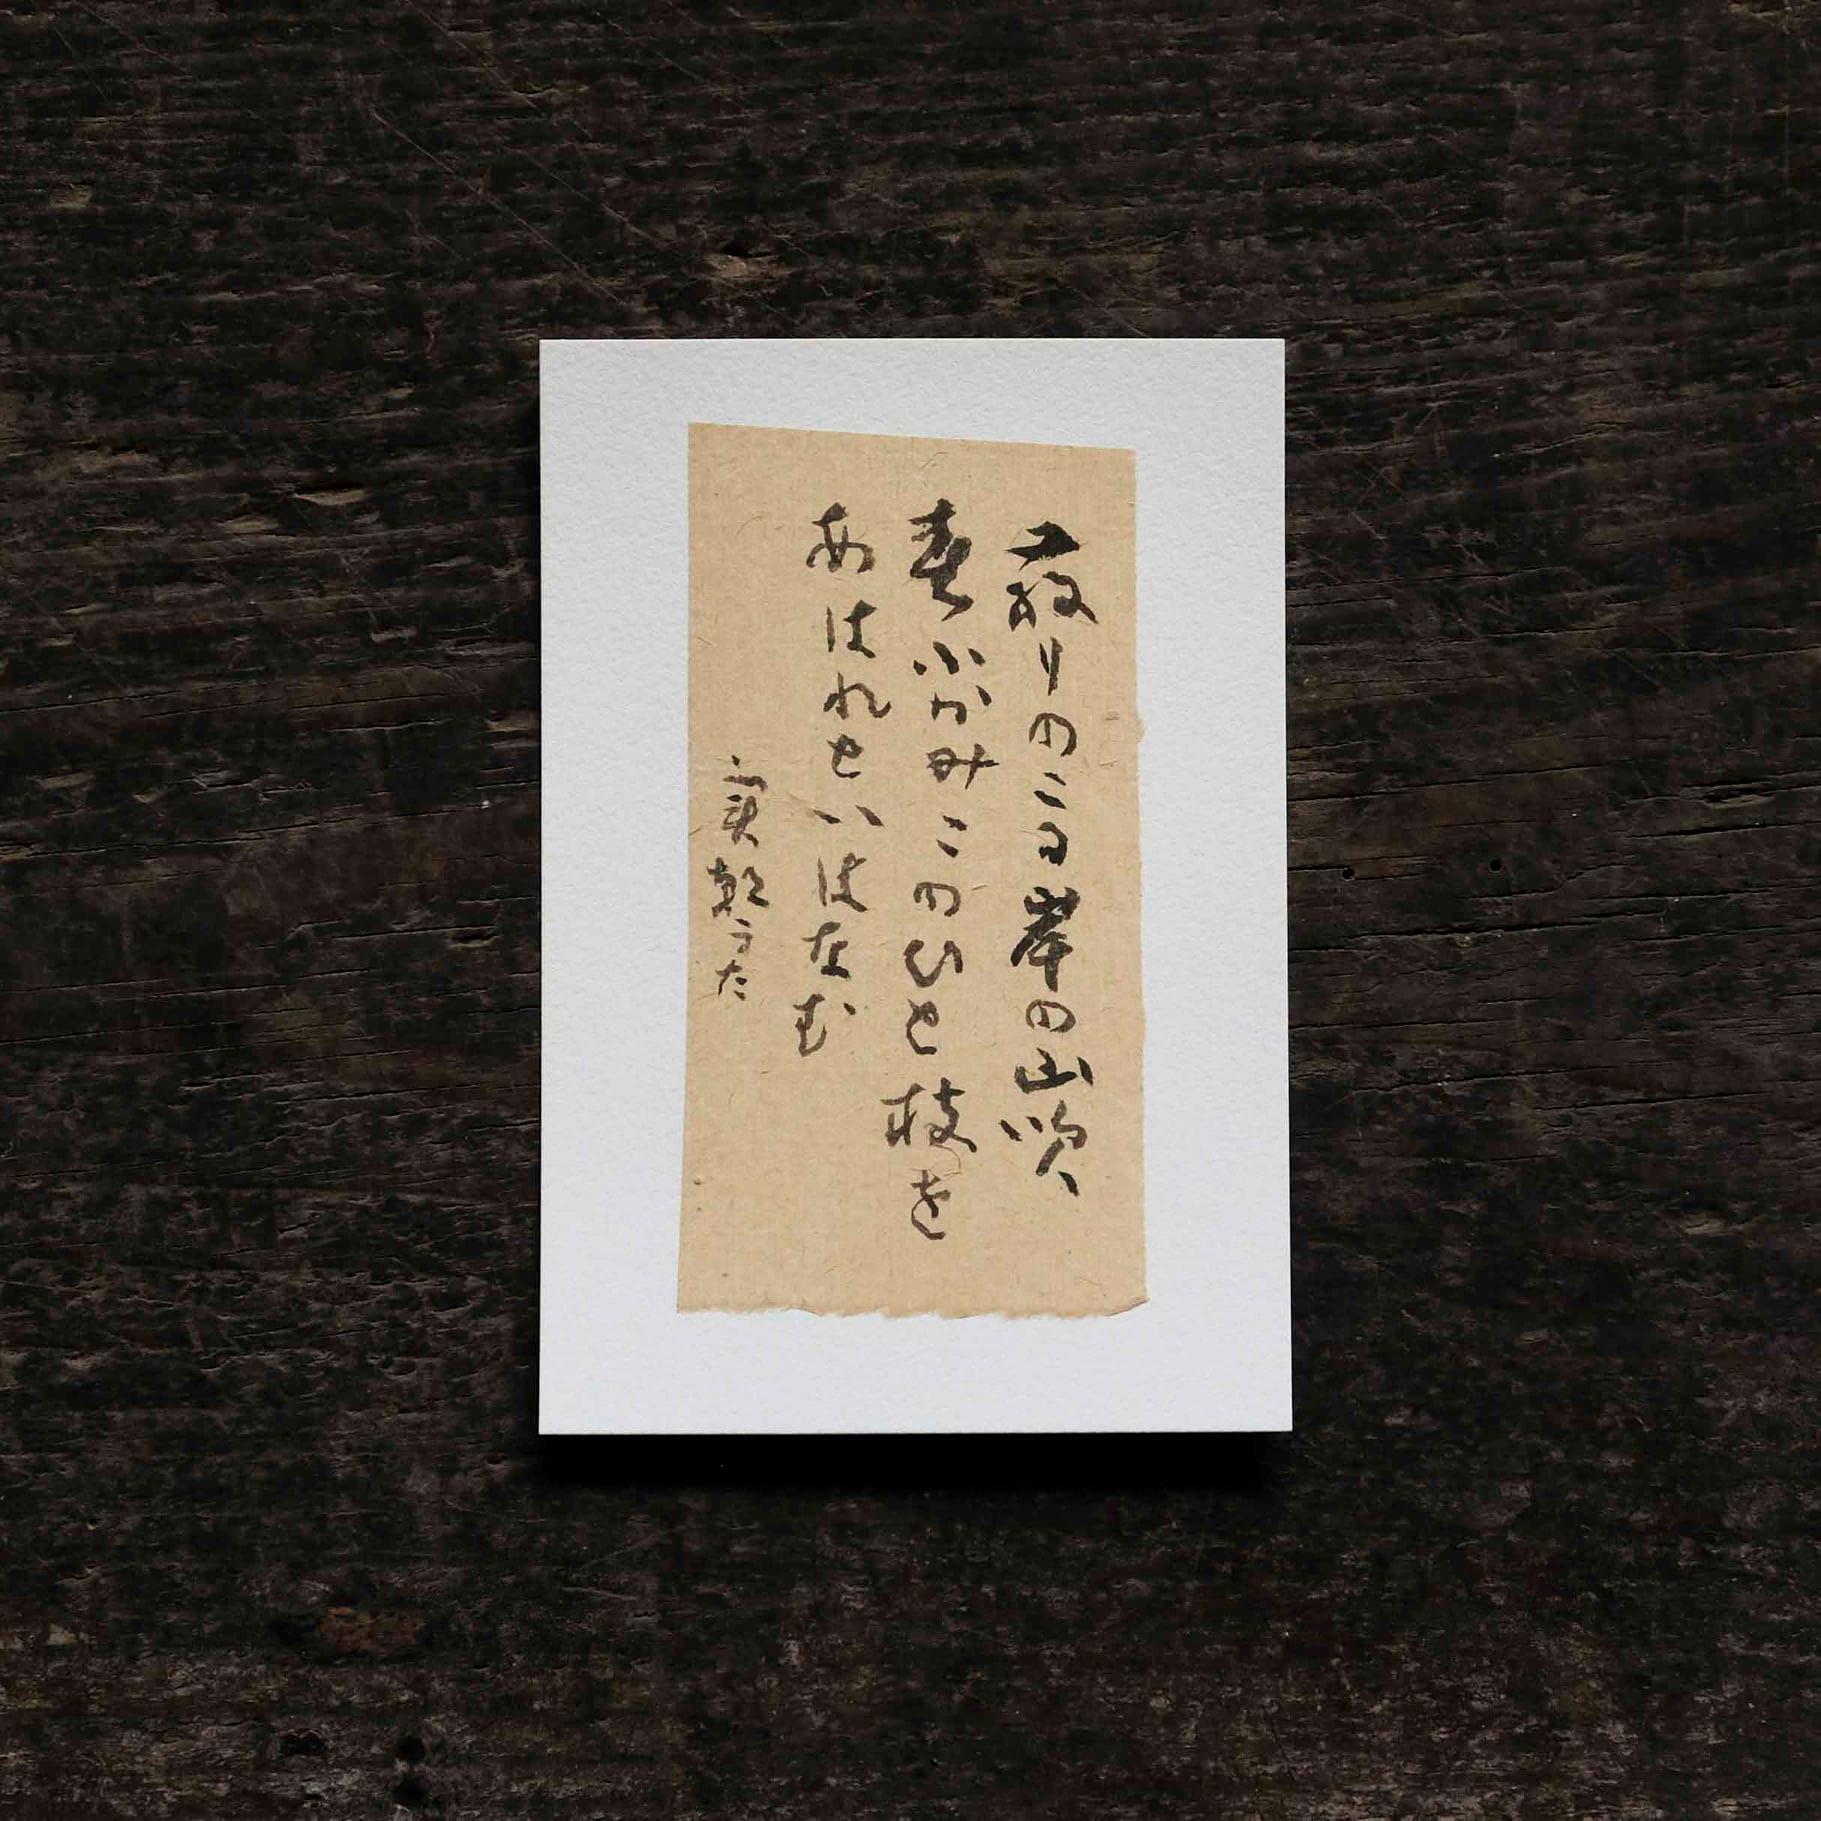 散りのこる岸の山吹
春ふかみこのひと枝を
あはれといはなむ
實朝うた